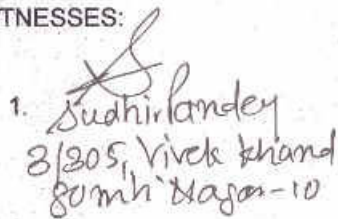 TNESSES:
1. Sudhir Pandey
3/305, Vivek Khand
Gomti Nagar-10